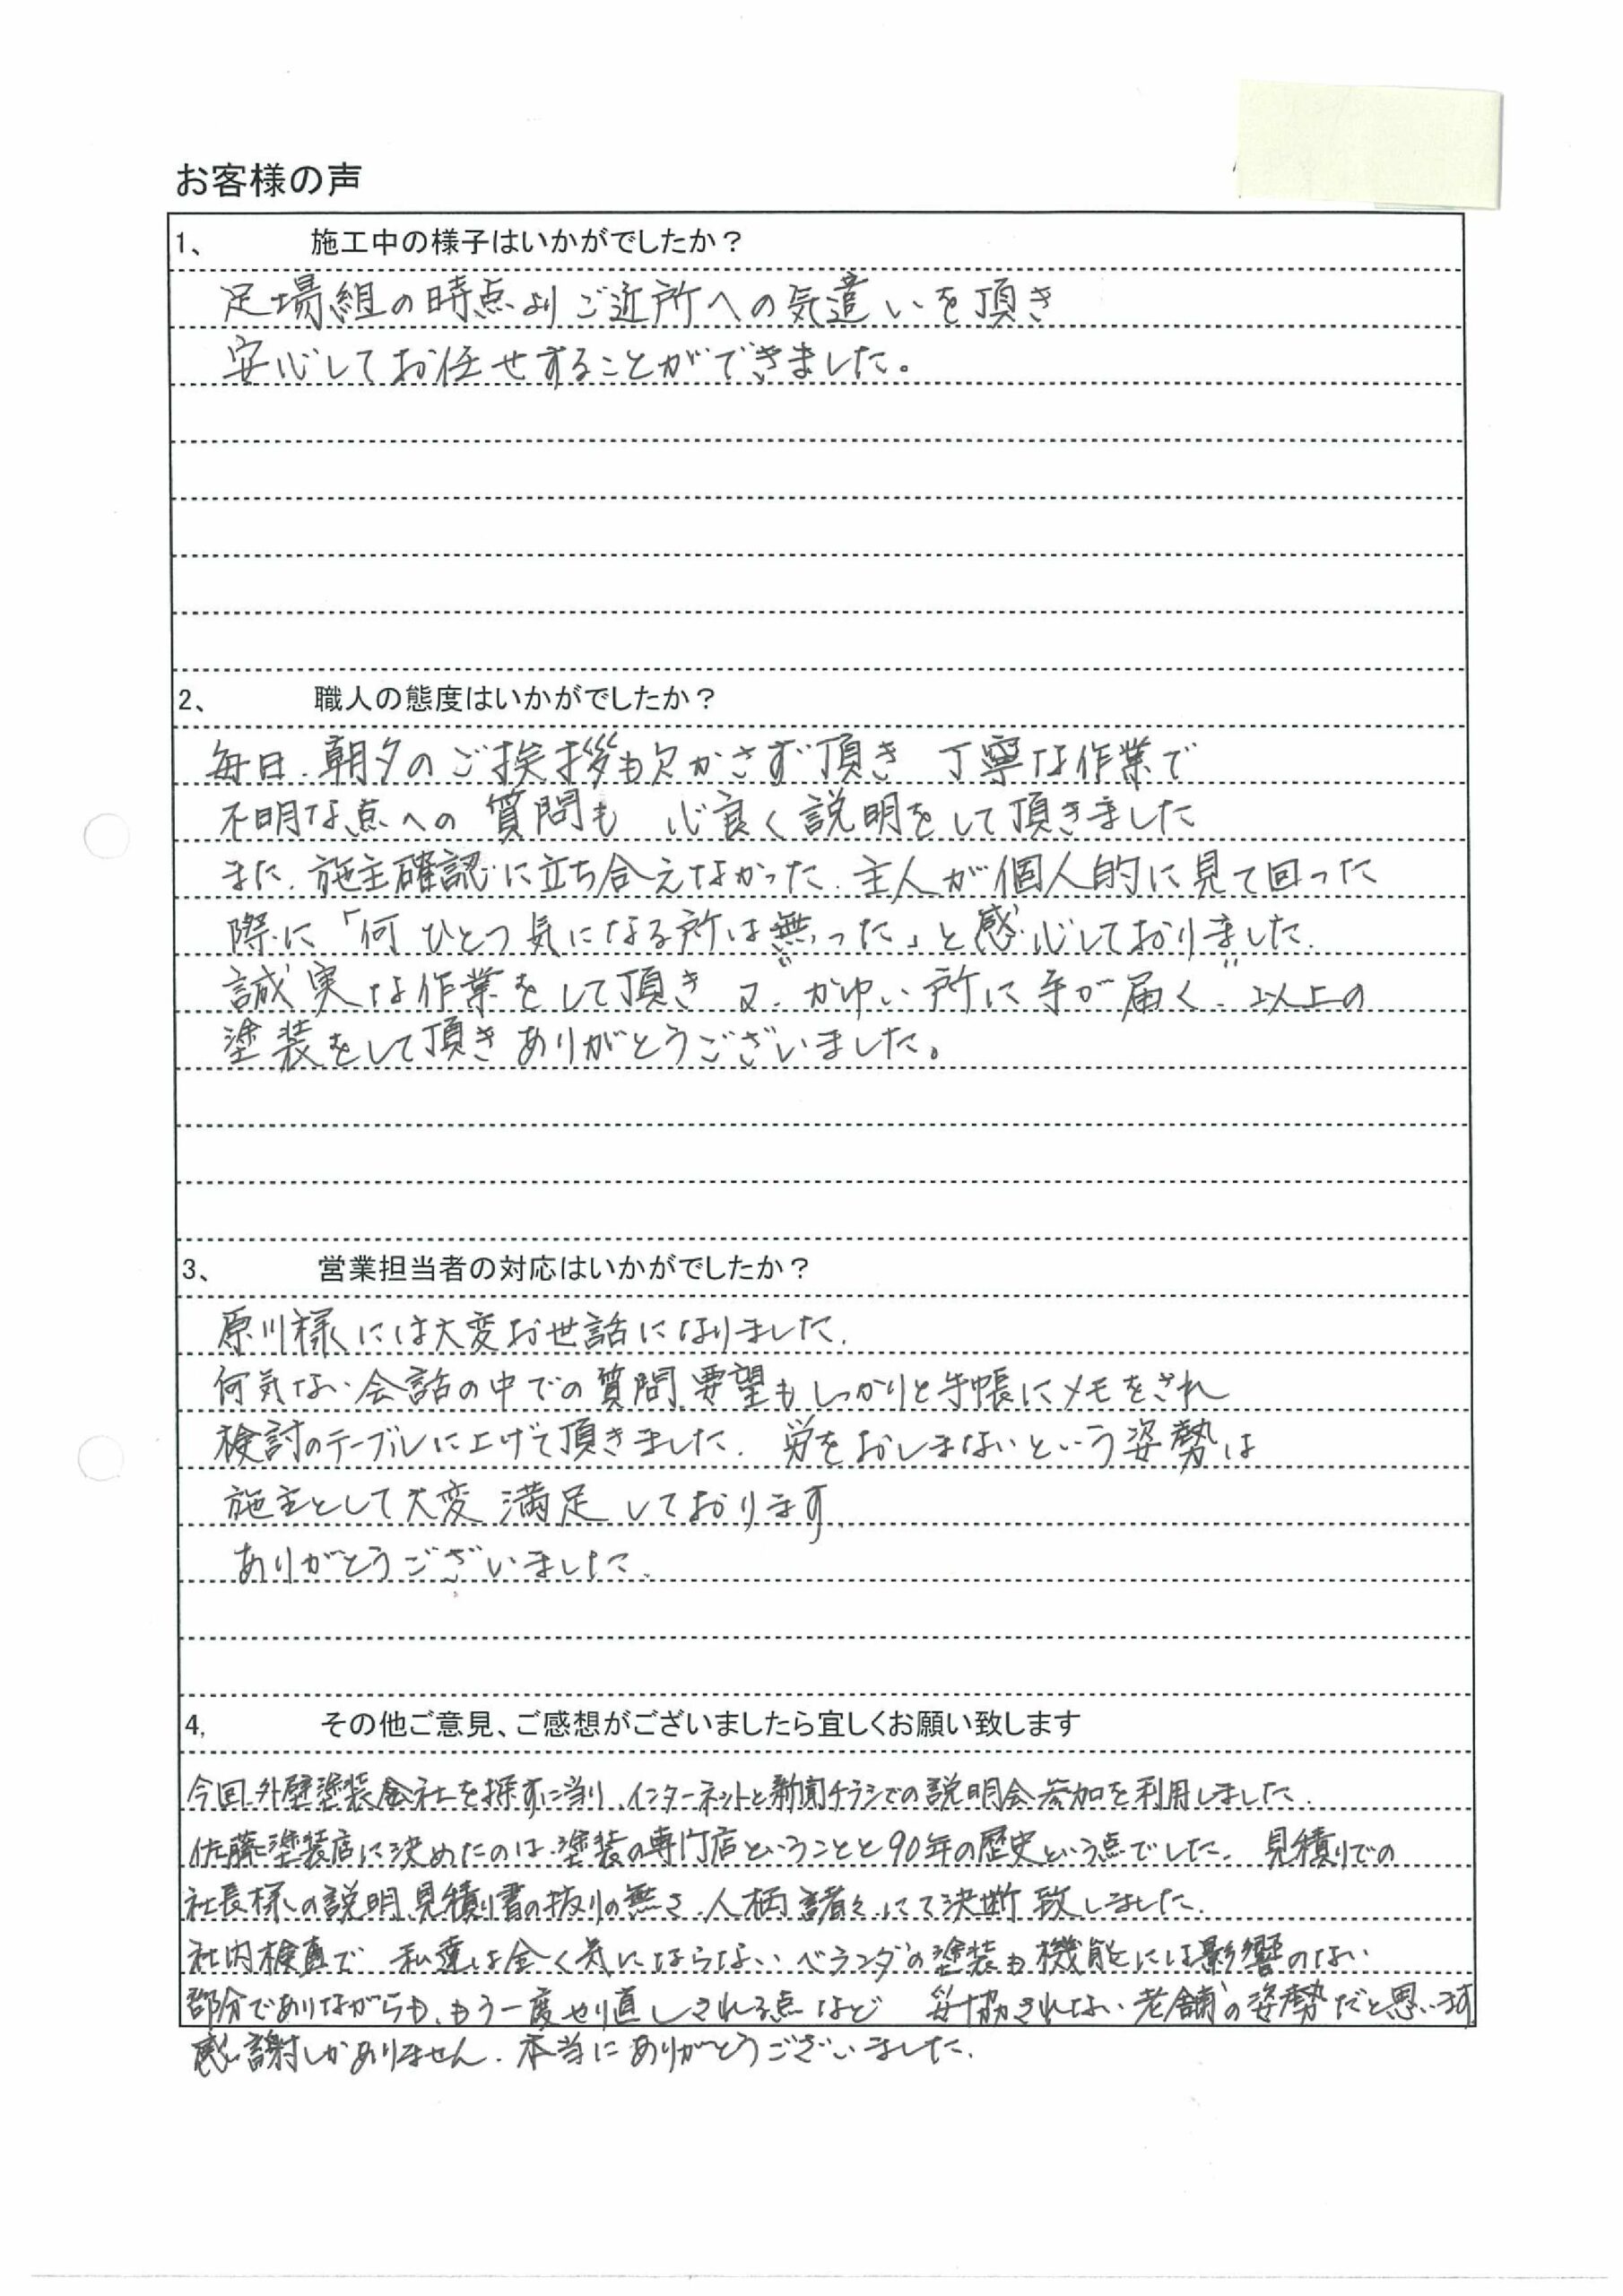 お客様の声
1、 施工中の様子はいかがでしたか？
足場組の時点よりご近所への気遣いを頂き
安心してお任せすることができました。
2、 職人の態度はいかがでしたか？
毎日、朝夕のご挨拶も欠かさず頂き 丁寧な作業で
不明な点への質問も 心良く説明をして頂きました
また、施主確認に立ち合えなかった、主人が個人的に見て回った
際に「何ひとつ気になる所は無った」と感心しておりました、
誠実な作業をして頂き 又、"かゆい所に手が届く"以上の
塗装をして頂きありがとうございました。
3、 営業担当者の対応はいかがでしたか？
原川様には大変お世話になりました、
何気ない会話の中での質問、要望もしっかりと手帳にメモをされ
検討のテーブルに上げて頂きました、労をおしまないという姿勢は
施主として大変満足しております、
ありがとうございました、
4, その他ご意見、ご感想がございましたら宜しくお願い致します
今回、外壁塗装会社を探すに当り、インターネットと新聞チラシでの説明会参加を利用しました、
佐藤塗装店に決めたのは、塗装の専門店ということと90年の歴史という点でした、見積りでの
社長様の説明、見積り書の抜りの無さ、人柄諸々、にて決断致しました、
社内検査で 私達は全く気にならないベランダの塗装も機能には影響のない
部分でありながらも、もう一度やり直しされる点など 妥協されない老舗の姿勢だと思います、
感謝しかありません、本当にありがとうございました、